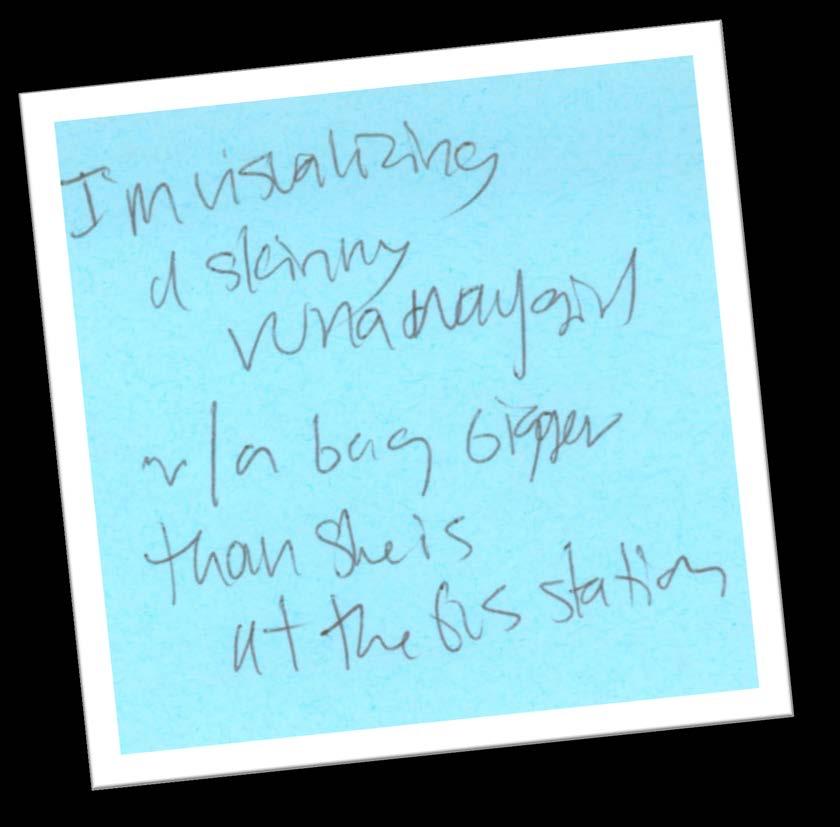 I'm visualizing
a skinny
runaway girl
w/a bag bigger
than she is
at the bus station